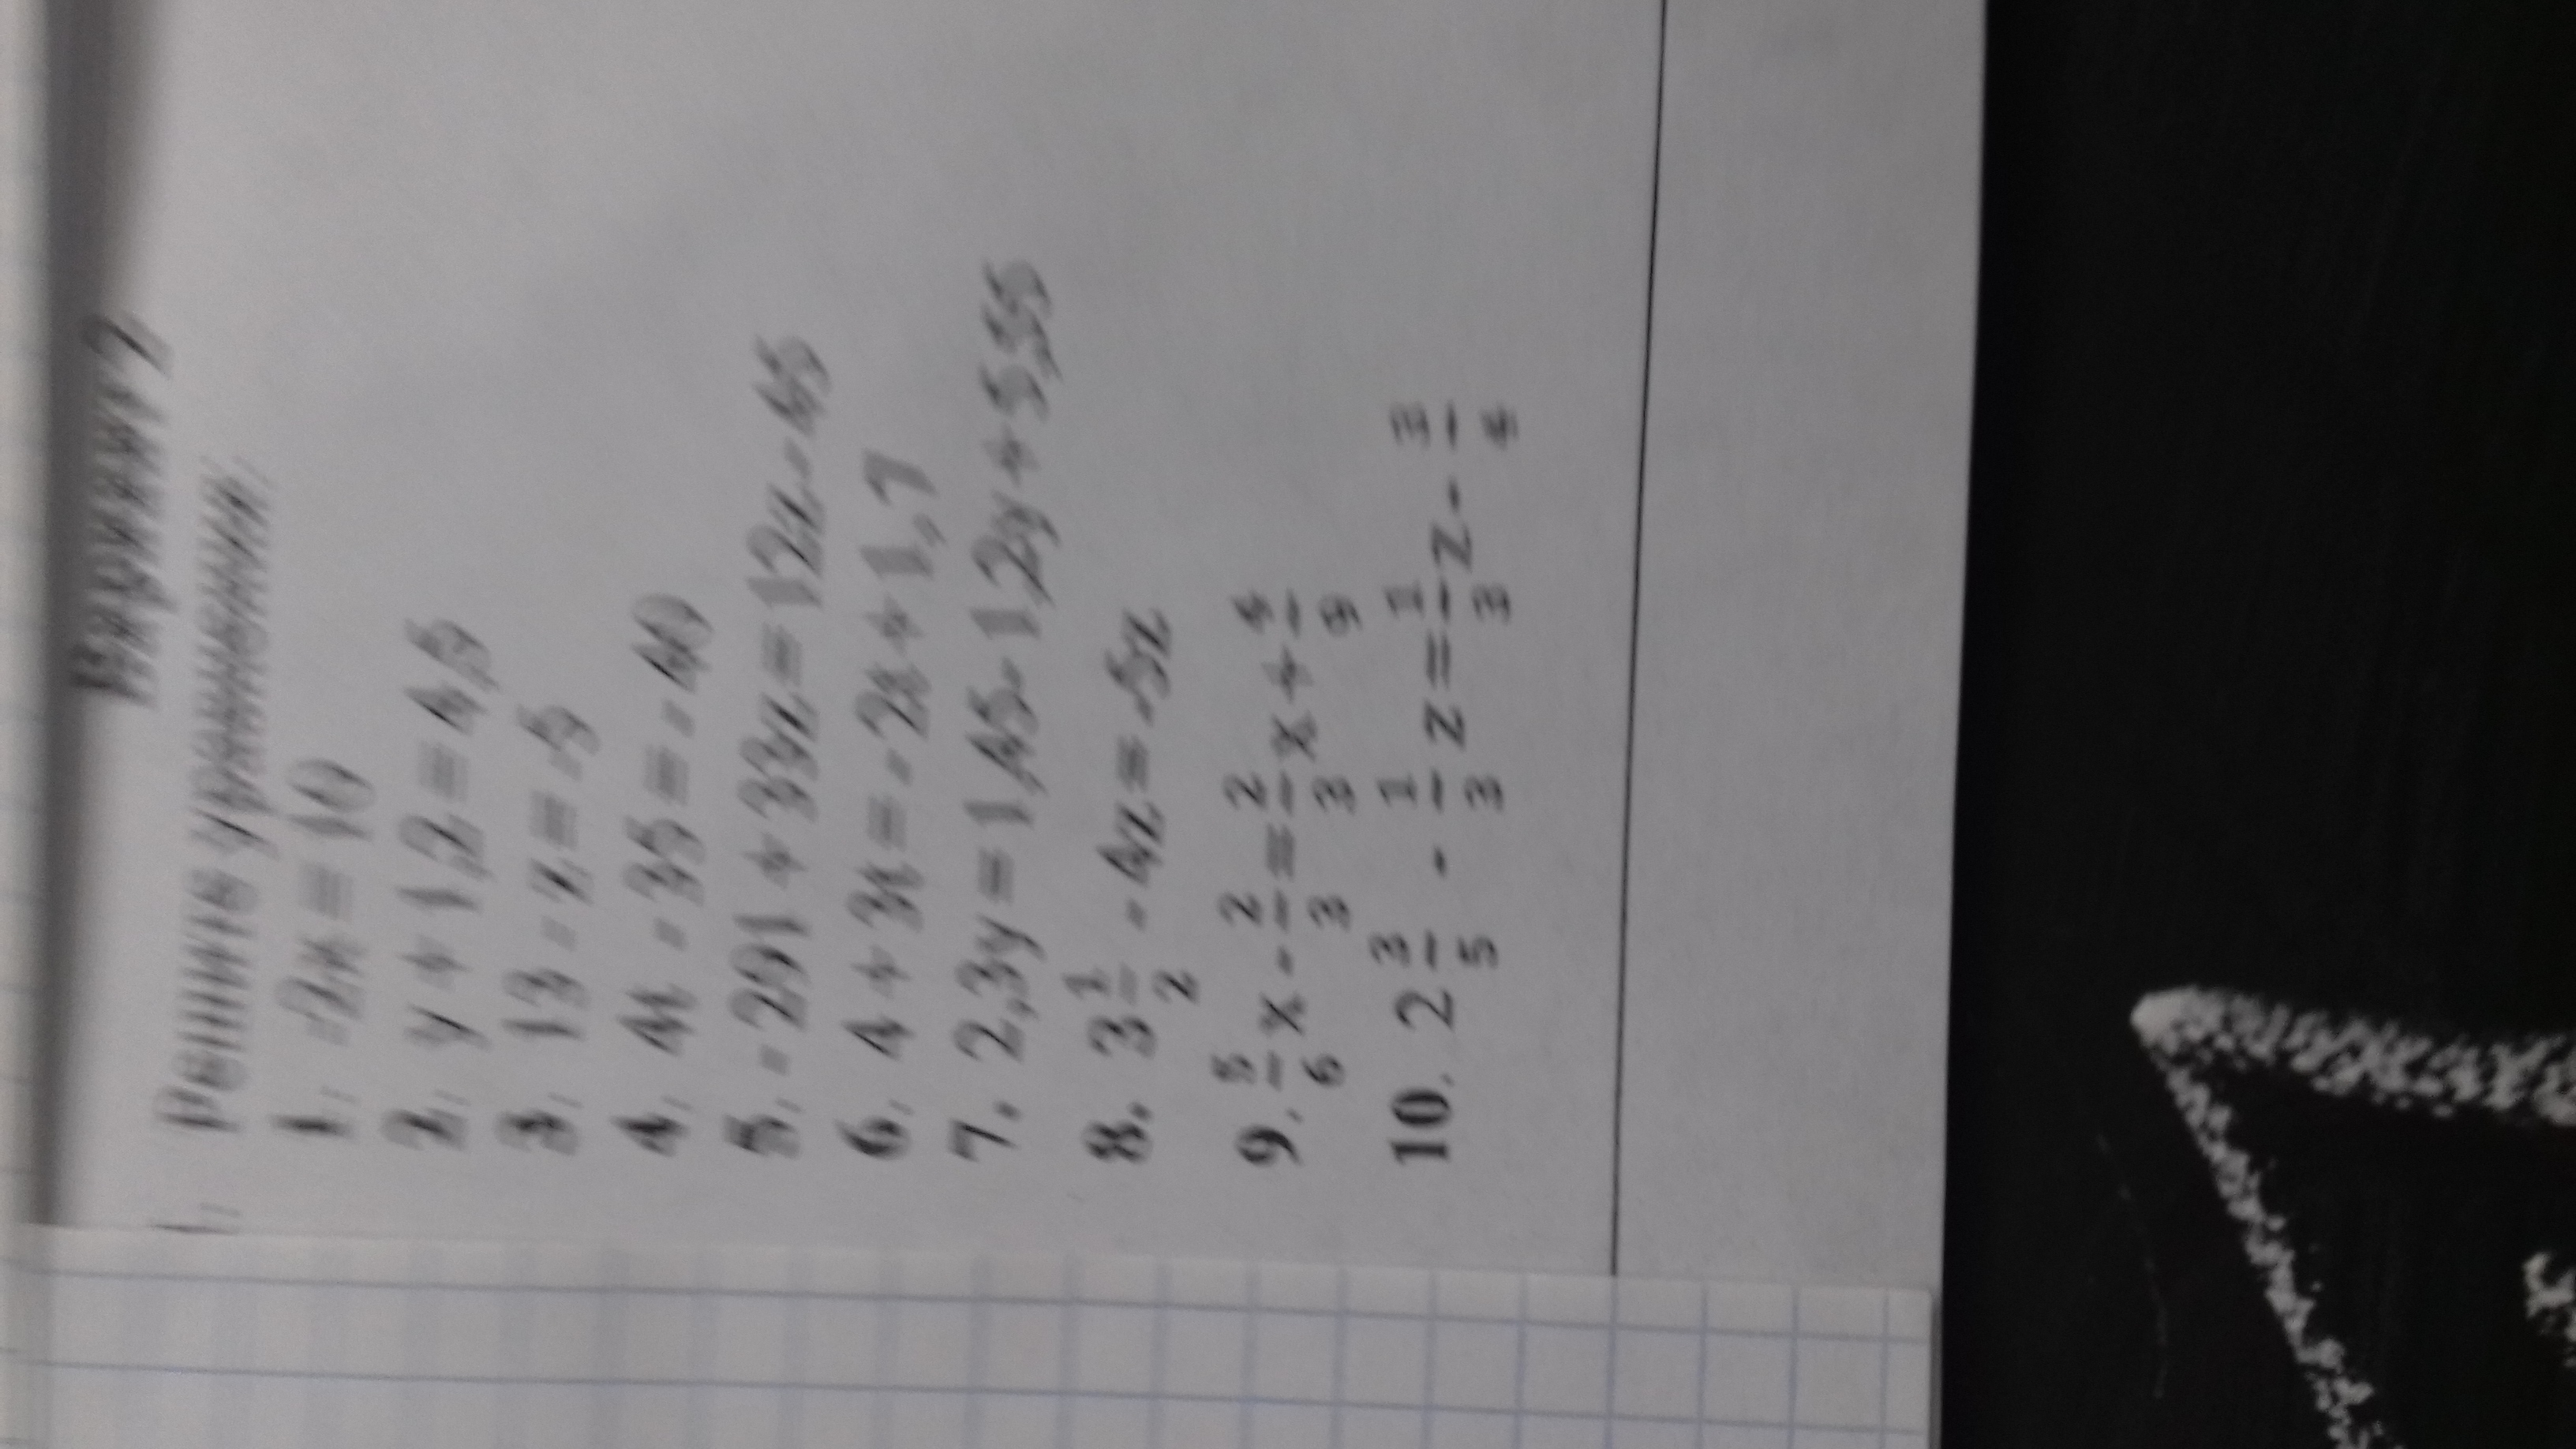 Вариант 7
1. Решите уравнения:
1. -2x = 10
2. y + 12 = 4,5
3. 13 - z = -5
4. 4x - 35 = -40
6. 4 + 3x = -2x + 1,7
7. 2,3y = 1,45 - 1,2y + 5,55
8. 3 1/2 - 4z = -5z
9. 5/6 x - 2/3 = 2/3 x + 4/9
10. 2 3/5 - 1/3 z = 1/3 z - 3/4